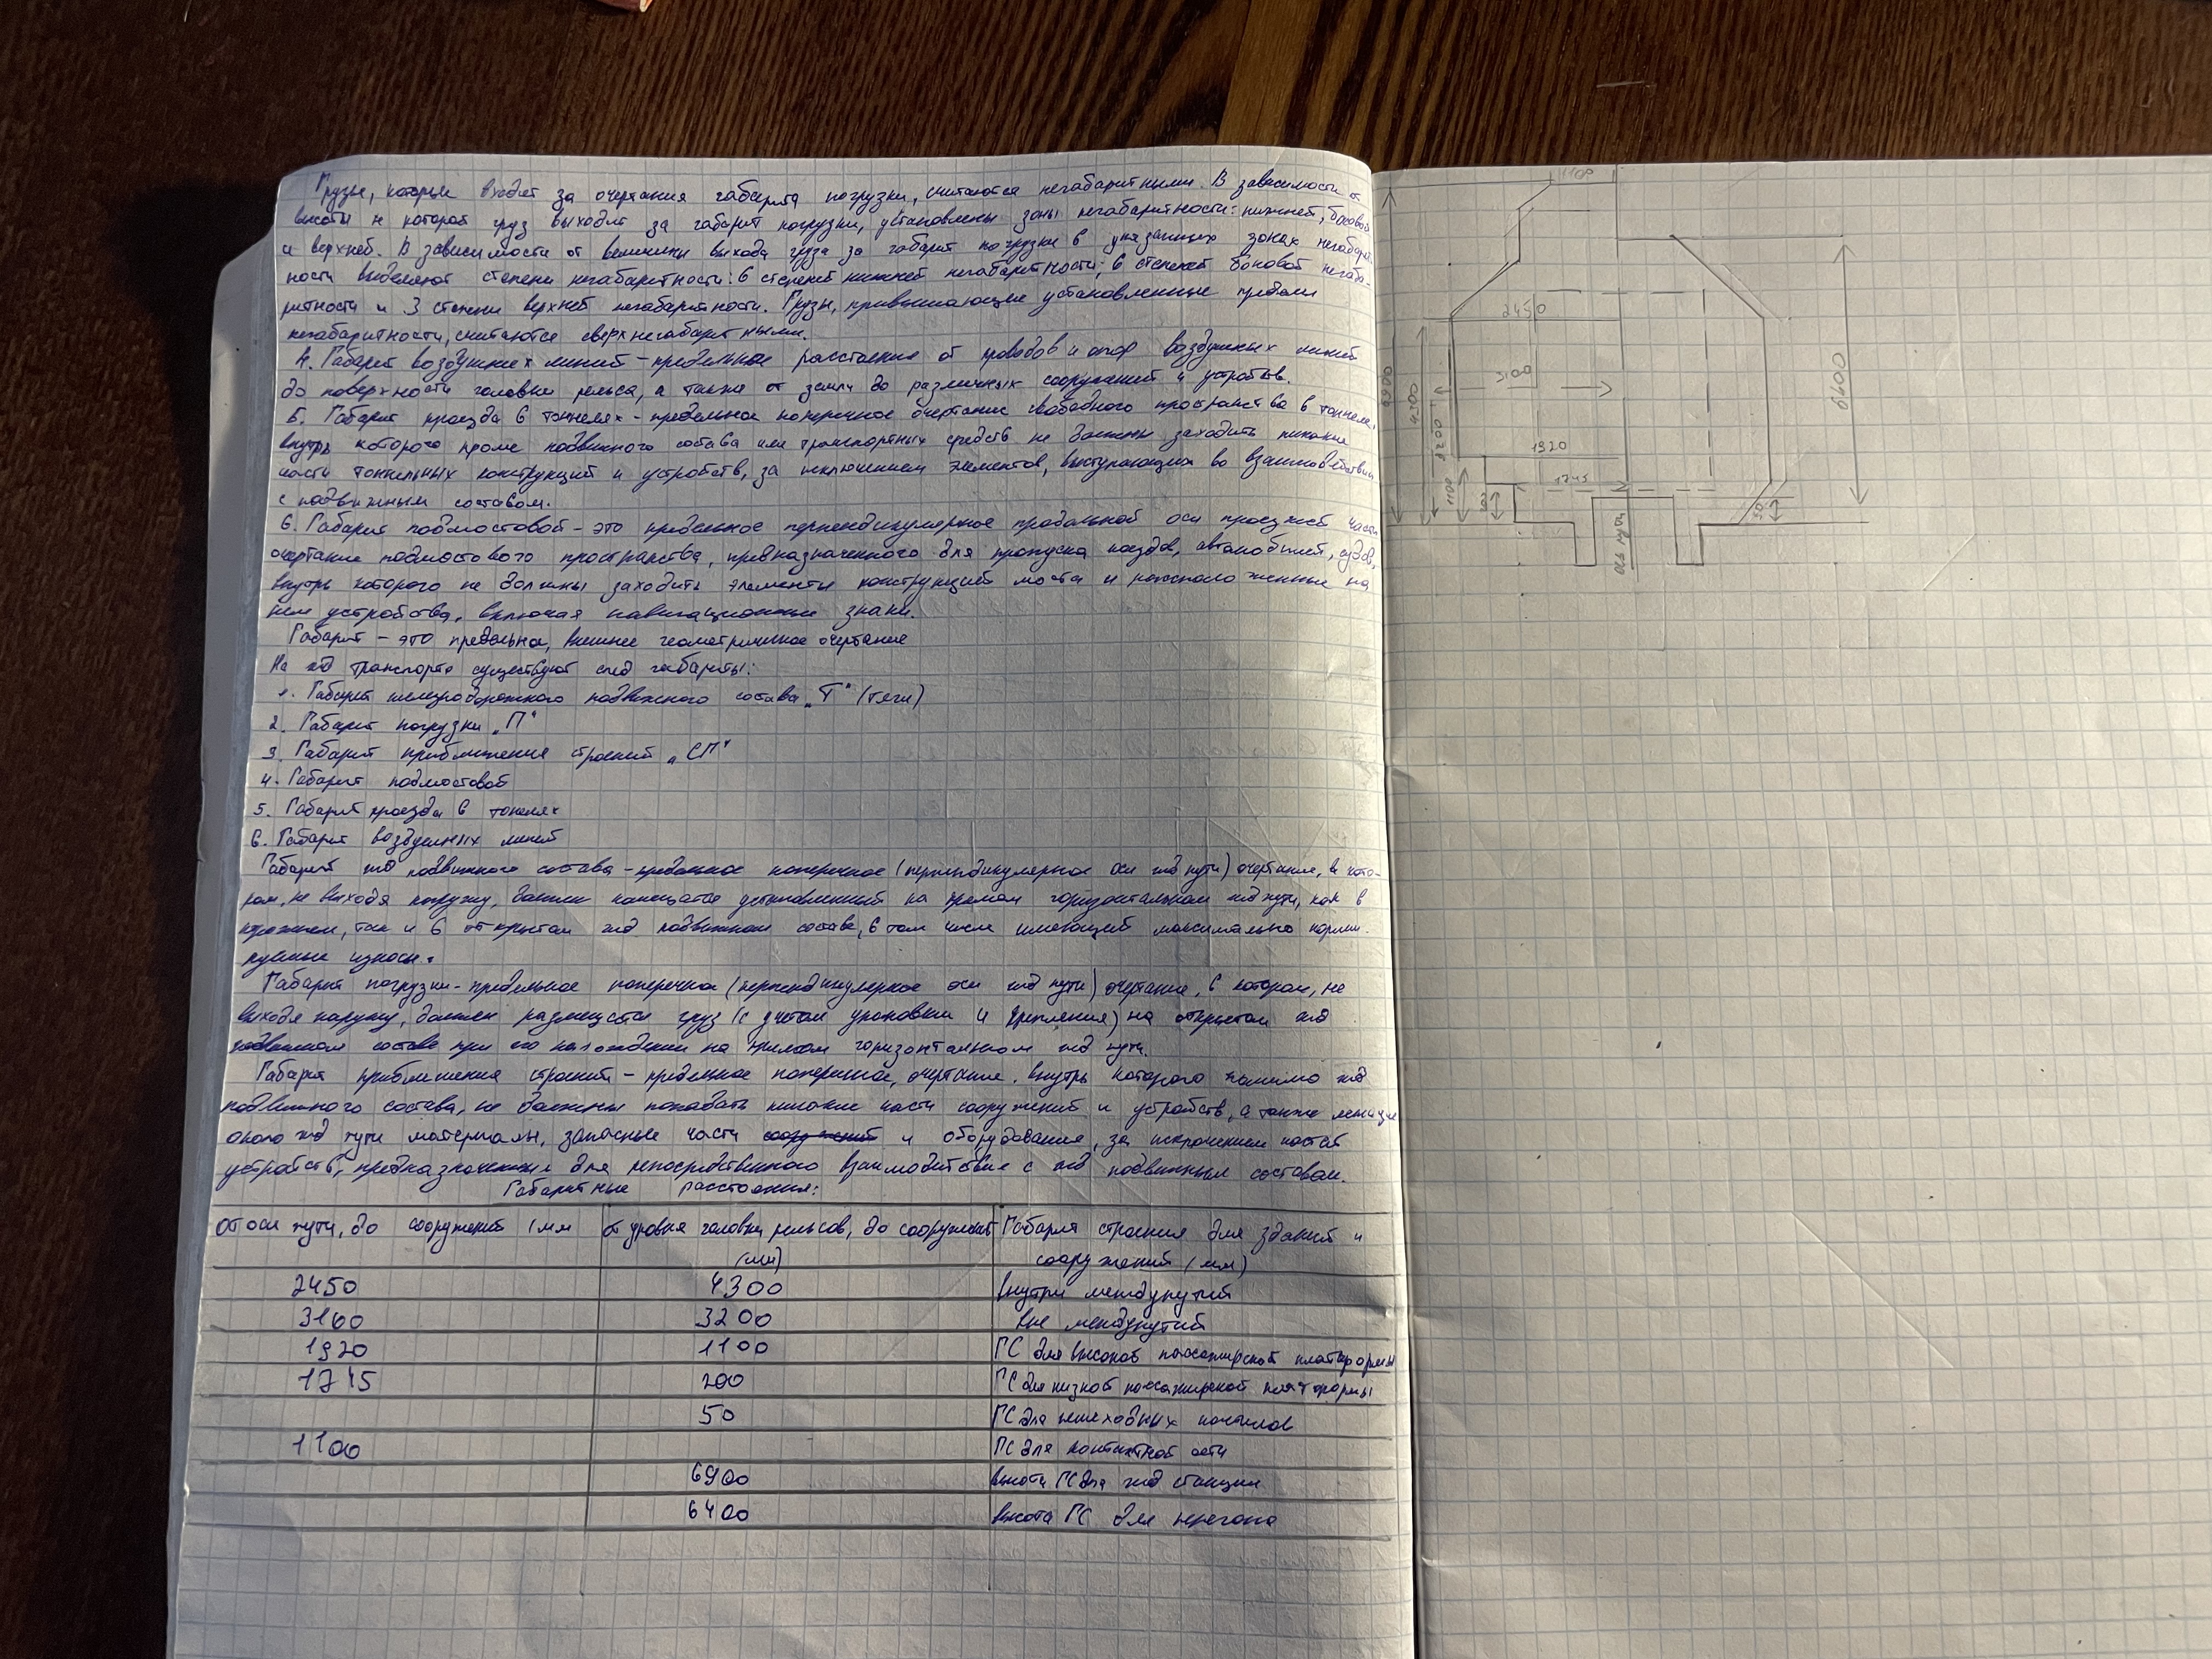 Грузы, которые входят за очертания габарита погрузки, считаются негабаритными. В зависимости от
высоты н которой груз выходит за габарит погрузки, установлены зоны негабаритности: нижней, боковой
и верхней. В зависимости от величины выхода груза за габарит погрузки в указанных зонах негабарит-
ности выделяют степени негабаритности: 6 степеней нижней негабаритности; 6 степеней боковой негаба-
ритности и 3 степени верхней негабаритности. Грузы, привышающие установленные пределы
негабаритности, считаются сверхнегабаритными.
4. Габарит воздушных линий - предельное расстояние от проводов и опор воздушных линий
до поверхности головки рельса, а также от земли до различных сооружений и устройств.
5. Габарит проезда в тоннелях - предельное поперечное очертание свободного пространства в тоннеле,
внутрь которого кроме подвижного состава или транспортных средств не должны заходить никакие
части тоннельных конструкций и устройств, за исключением элементов, выступающих во взаимодействии
с подвижным составом.
6. Габарит подмостовой - это предельное перпендикулярное продольной оси проезжей части
очертание подмостового пространства, предназначенного для пропуска поездов, автомобилей, судов,
внутрь которого не должны заходить элементы конструкций моста и расположенные на
нём устройства, включая навигационные знаки.
Габарит - это предельно, внешнее геометричное очертание
На жд транспорте существуют след габариты:
1. Габарит железнодорожного подвижного состава „Т" (тяги)
2. Габарит погрузки „П"
3. Габарит приближения строений „СП"
4. Габарит подмостовой
5. Габарит проезда в тонелях
6. Габарит воздушных линий
Габарит жд подвижного состава - предельное поперечное (перпендикулярное оси жд пути) очертание, в кото-
ром, не выходя наружу, должен помещатся установленный на прямом горизонтальном жд пути, как в
порожнем, так и в открытом жд подвижном составе, в том числе имеющий максимально норми-
руемые износы.
Габарит погрузки - предельное поперечное (перпендикулярное оси жд пути) очертание, в котором, не
выходя наружу, должен размещатся груз (с учетом упаковки и крепления) на открытом жд
подвижном составе при его нахождении на прямом горизонтальном жд пути.
Габарит приближения строений - предельное поперечное, очертание, внутрь которого помимо жд
подвижного состава, не должны попадать никакие части сооружений и устройств, а также лежащие
около жд пути материалы, запасные части сооружений и оборудования, за исключением частей
устройств, предназначенные для непосредственного взаимодействие с жд подвижным составом.
Габаритные расстояния:
от оси пути, до сооружений (мм от уровня головки рельсов, до сооружений (мм) Габарит строения для зданий и сооружений (мм)
2450 4300 внутри междупутий
3160 3200 вне междупутий
1920 1100 ГС для высокой пассажирской платформы
1745 200 ГС для низкой пассажирской платформы
50 ГС для пешеходных настилов
1100 ГС для контактной сети
6900 высота ГС для жд станции
6400 высота ГС для перегона
1100
2450
3100
1920
1745
4300
3200
1100
50
ось пути
6400